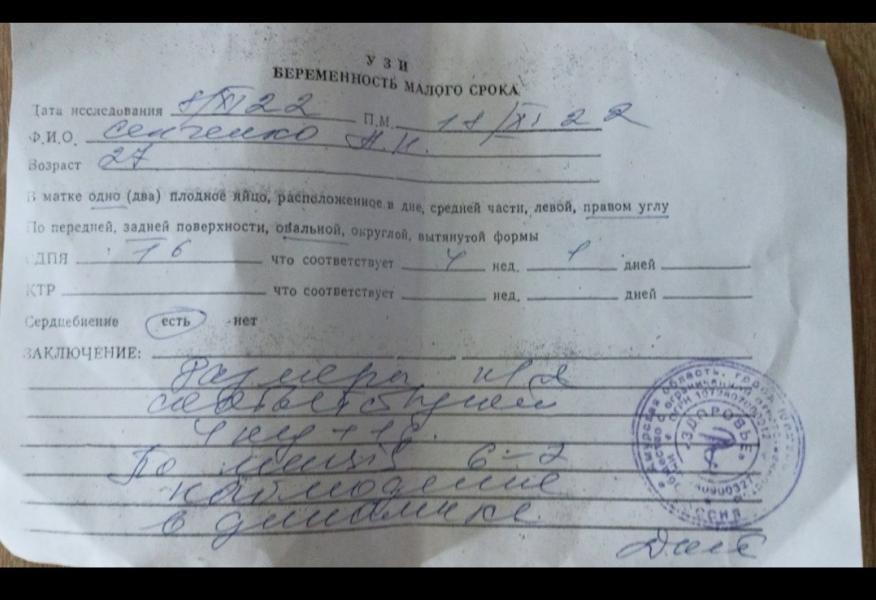 УЗИ
БЕРЕМЕННОСТЬ МАЛОГО СРОКА
Дата исследования 8/XI 22 П.М. 18/XI 22
Ф.И.О. Сенченко Н.Н.
Возраст 27
В матке одно (два) плодное яйцо, расположенное в дне, средней части, левой, правом углу
По передней, задней поверхности, овальной, округлой, вытянутой формы
СДПЯ 16 что соответствует 4 нед. 1 дней
КТР что соответствует нед. дней
Сердцебиение есть нет
ЗАКЛЮЧЕНИЕ:
Размеры
соответствуют
4 нед + 1
По 6-2
наблюдение
в динамике
Амурская область, город
ЗДОРОВЬЕ